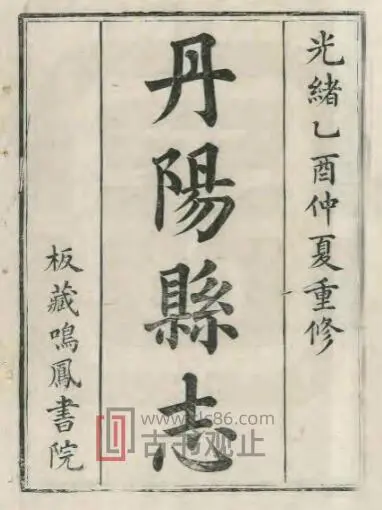 光緒乙酉仲夏重修
丹陽縣志
板藏鳴鳳書院
www.klc86.com
古书观止